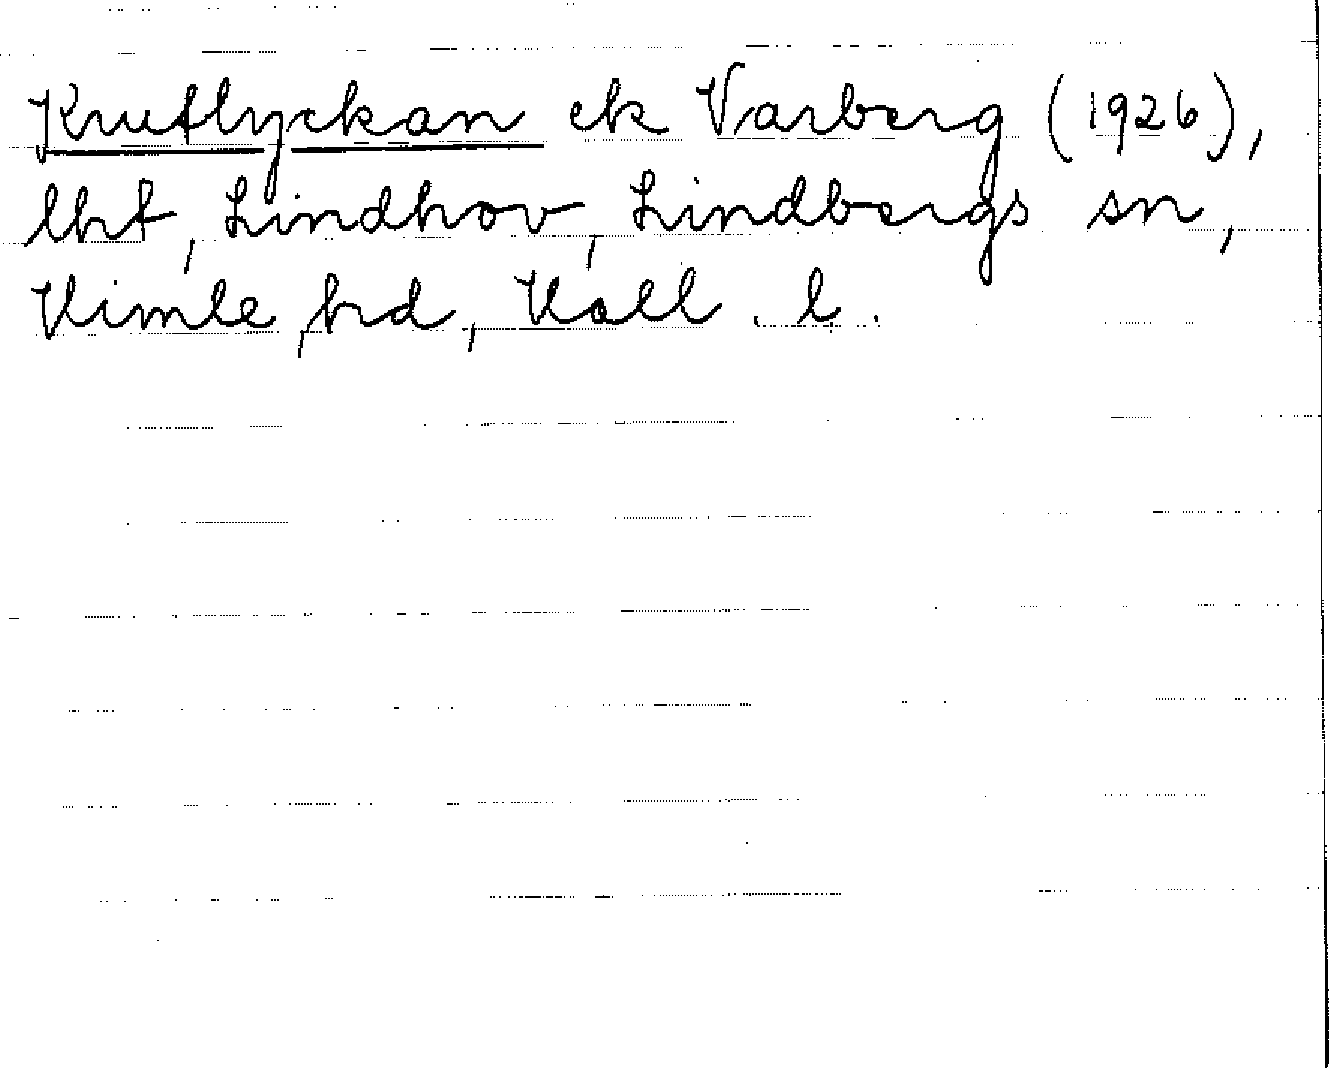 Krutlyckan ek Varberg (1926),
lht, Lindhov, Lindbergs sn,
Himle hd, Hall. l.